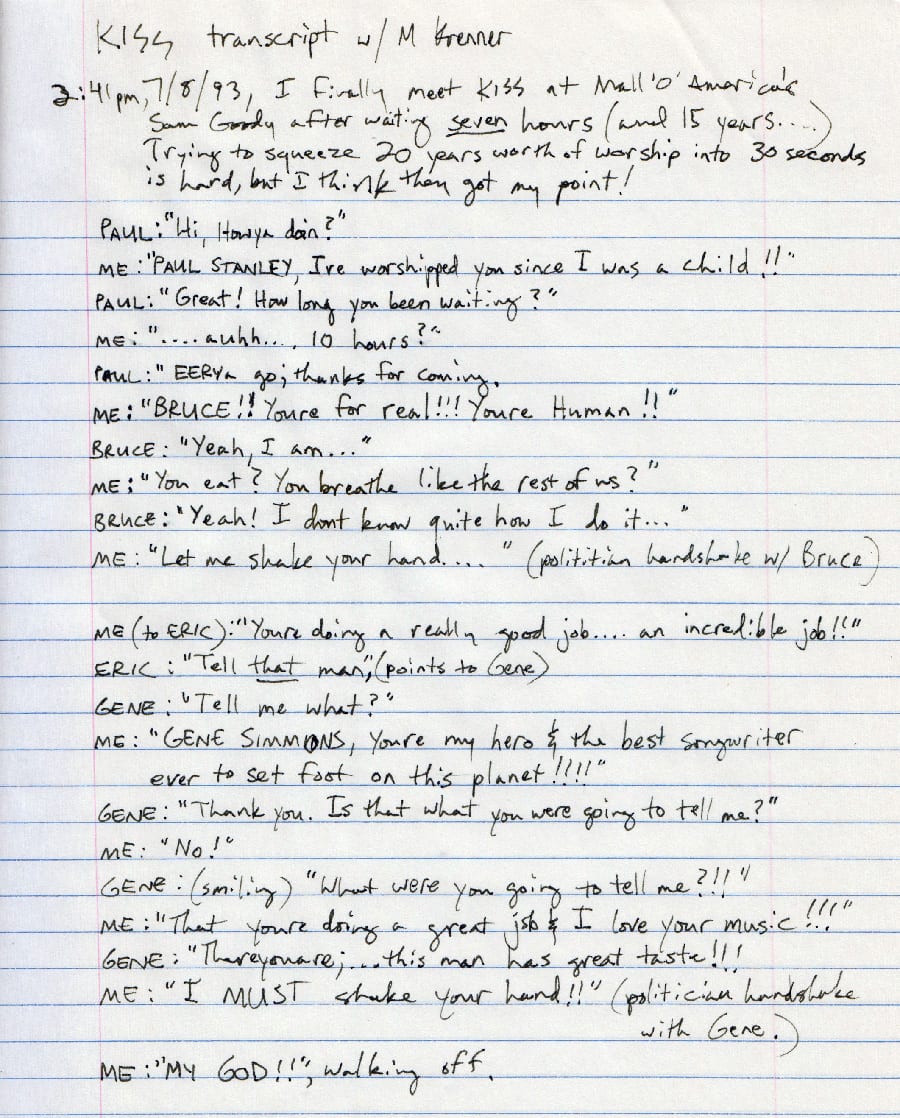 KISS transcript w/ M Krenner
3:41pm, 7/8/93, I finally meet KISS at Mall 'O' America's
Sam Goody after waiting seven hours (and 15 years....)
Trying to squeeze 20 years worth of worship into 30 seconds
is hard, but I think they got my point!
PAUL: "Hi, Howya doin?"
ME: "PAUL STANLEY, Ive worshipped you since I was a child!!"
PAUL: "Great! How long you been waiting?"
ME: "....auhh.... 10 hours?"
PAUL: "EERYa go; thanks for coming.
ME: "BRUCE!! Youre for real!!! Youre Human!!"
BRUCE: "Yeah, I am..."
ME: "You eat? You breathe like the rest of us?"
BRUCE: "Yeah! I dont know quite how I do it..."
ME: "Let me shake your hand...." (politition handshake w/ Bruce)
ME (to ERIC): "Youre doing a really good job.... an incredible job!!"
ERIC: "Tell that man," (points to Gene)
GENE: "Tell me what?"
ME: "GENE SIMMONS, Youre my hero & the best songwriter
ever to set foot on this planet!!!!"
GENE: "Thank you. Is that what you were going to tell me?"
ME: "No!"
GENE: (smiling) "What were you going to tell me?!!"
ME: "That youre doing a great job & I love your music!!!"
GENE: "Thereyouare;...this man has great taste!!!
ME: "I MUST shake your hand!!" (politician handshake
with Gene.)
ME: "MY GOD!!", walking off.